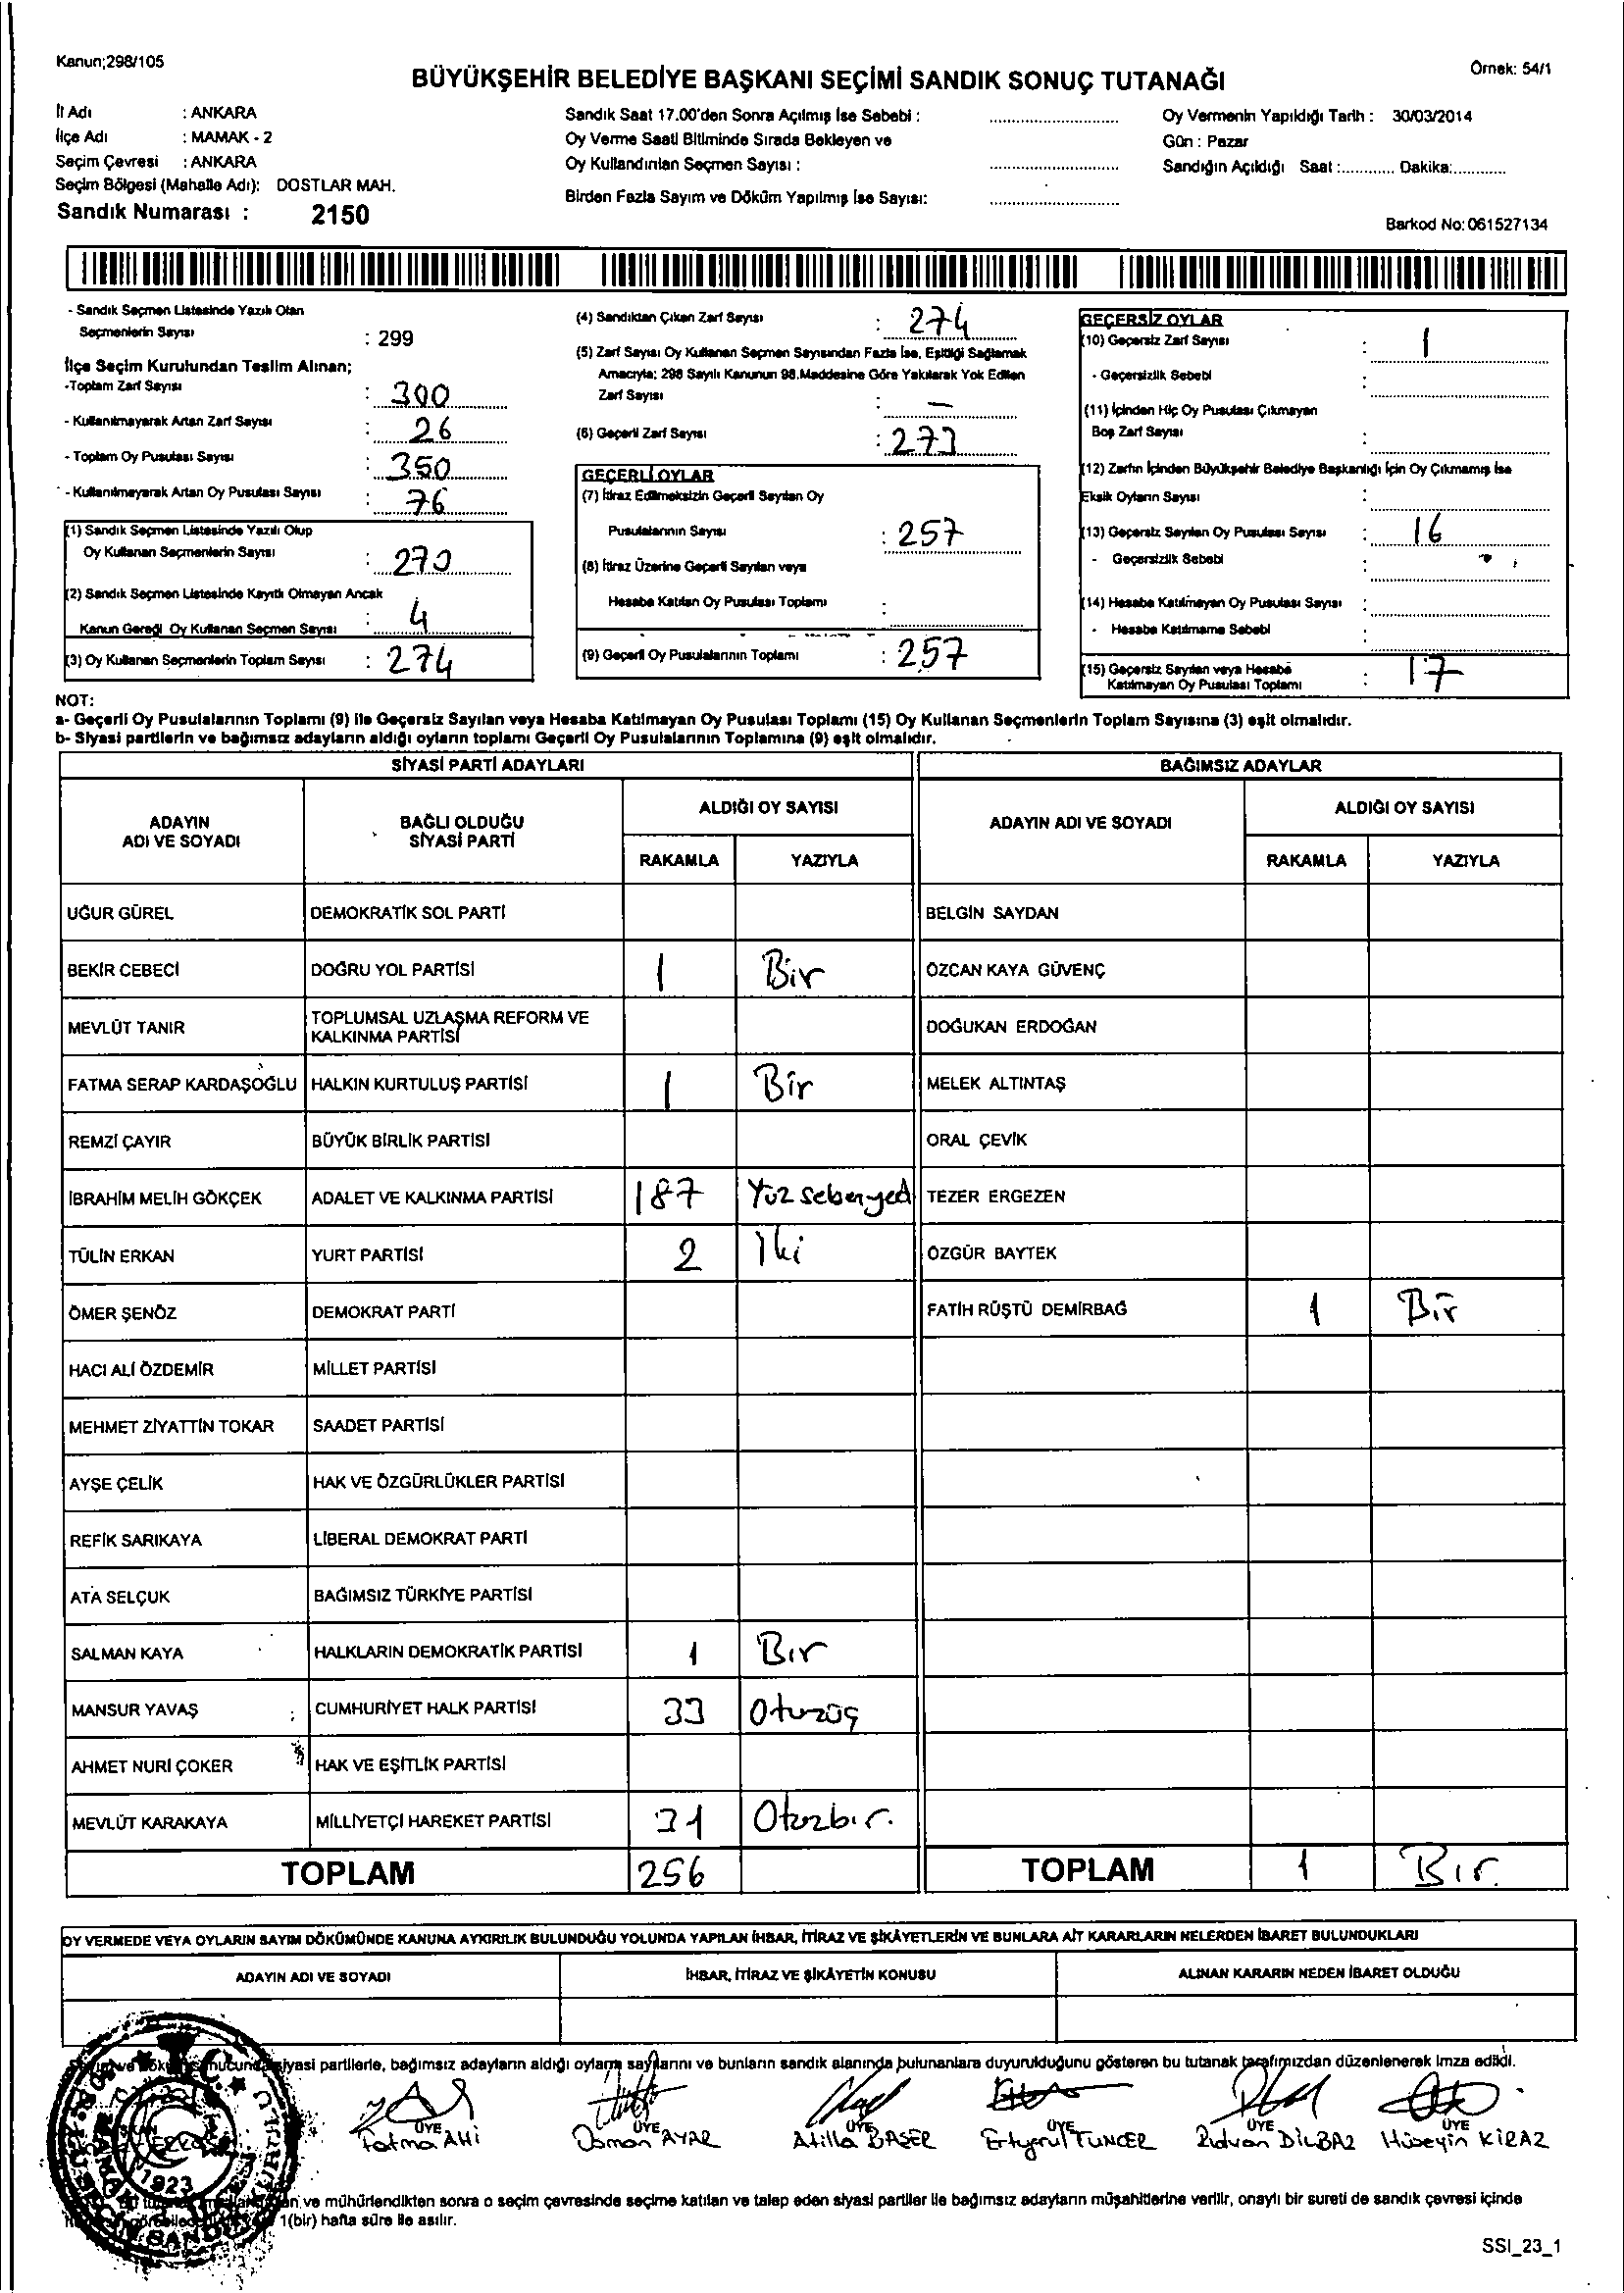 Kanun;298/105
Örnek: 54/1
BÜYÜKŞEHİR BELEDİYE BAŞKANI SEÇİMİ SANDIK SONUÇ TUTANAĞI
İl Adı : ANKARA
İlçe Adı : MAMAK - 2
Seçim Çevresi : ANKARA
Seçim Bölgesi (Mahalle Adı): DOSTLAR MAH.
Sandık Numarası : 2150
Sandık Saat 17.00'den Sonra Açılmış İse Sebebi : ..............................
Oy Verme Saati Bitiminde Sırada Bekleyen ve
Oy Kullandırılan Seçmen Sayısı : ..............................
Birden Fazla Sayım ve Döküm Yapılmış İse Sayısı: ..............................
Oy Vermenin Yapıldığı Tarih : 30/03/2014
Gün : Pazar
Sandığın Açıldığı Saat :............ Dakika:............
Barkod No: 061527134
- Sandık Seçmen Listesinde Yazılı Olan
Seçmenlerin Sayısı : 299
İlçe Seçim Kurulundan Teslim Alınan;
-Toplam Zarf Sayısı : 300
- Kullanılmayarak Artan Zarf Sayısı : 26
- Toplam Oy Pusulası Sayısı : 350
- Kullanılmayarak Artan Oy Pusulası Sayısı : 76
(1) Sandık Seçmen Listesinde Yazılı Olup
Oy Kullanan Seçmenlerin Sayısı : 270
(2) Sandık Seçmen Listesinde Kayıtlı Olmayan Ancak
Kanun Gereği Oy Kullanan Seçmen Sayısı : 4
(3) Oy Kullanan Seçmenlerin Toplam Sayısı : 274
(4) Sandıktan Çıkan Zarf Sayısı : 274
(5) Zarf Sayısı Oy Kullanan Seçmen Sayısından Fazla İse, Eşitliği Sağlamak
Amacıyla; 298 Sayılı Kanunun 98.Maddesine Göre Yakılarak Yok Edilen
Zarf Sayısı : –
(6) Geçerli Zarf Sayısı : 273
GEÇERLİ OYLAR
(7) İtiraz Edilmeksizin Geçerli Sayılan Oy
Pusulalarının Sayısı : 257
(8) İtiraz Üzerine Geçerli Sayılan veya
Hesaba Katılan Oy Pusulası Toplamı :
(9) Geçerli Oy Pusulalarının Toplamı : 257
GEÇERSİZ OYLAR
(10) Geçersiz Zarf Sayısı : 1
- Geçersizlik Sebebi :
(11) İçinden Hiç Oy Pusulası Çıkmayan
Boş Zarf Sayısı :
(12) Zarfın İçinden Büyükşehir Belediye Başkanlığı İçin Oy Çıkmamış İse
Eksik Oyların Sayısı :
(13) Geçersiz Sayılan Oy Pusulası Sayısı : 16
- Geçersizlik Sebebi :
(14) Hesaba Katılmayan Oy Pusulası Sayısı :
- Hesaba Katılmama Sebebi :
(15) Geçersiz Sayılan veya Hesaba
Katılmayan Oy Pusulası Toplamı : 17
NOT:
a- Geçerli Oy Pusulalarının Toplamı (9) ile Geçersiz Sayılan veya Hesaba Katılmayan Oy Pusulası Toplamı (15) Oy Kullanan Seçmenlerin Toplam Sayısına (3) eşit olmalıdır.
b- Siyasi partilerin ve bağımsız adayların aldığı oyların toplamı Geçerli Oy Pusulalarının Toplamına (9) eşit olmalıdır.
SİYASİ PARTİ ADAYLARI BAĞIMSIZ ADAYLAR
ADAYIN
ADI VE SOYADI
BAĞLI OLDUĞU
SİYASİ PARTİ
ALDIĞI OY SAYISI
RAKAMLA YAZIYLA
ADAYIN ADI VE SOYADI
ALDIĞI OY SAYISI
RAKAMLA YAZIYLA
UĞUR GÜREL DEMOKRATİK SOL PARTİ BELGİN SAYDAN
BEKİR CEBECİ DOĞRU YOL PARTİSİ 1 Bir ÖZCAN KAYA GÜVENÇ
MEVLÜT TANIR TOPLUMSAL UZLAŞMA REFORM VE
KALKINMA PARTİSİ DOĞUKAN ERDOĞAN
FATMA SERAP KARDAŞOĞLU HALKIN KURTULUŞ PARTİSİ 1 Bir MELEK ALTINTAŞ
REMZİ ÇAYIR BÜYÜK BİRLİK PARTİSİ ORAL ÇEVİK
İBRAHİM MELİH GÖKÇEK ADALET VE KALKINMA PARTİSİ 187 Yüz seksenyed TEZER ERGEZEN
TÜLİN ERKAN YURT PARTİSİ 2 İki ÖZGÜR BAYTEK
ÖMER ŞENÖZ DEMOKRAT PARTİ FATİH RÜŞTÜ DEMİRBAĞ 1 Bir
HACI ALİ ÖZDEMİR MİLLET PARTİSİ
MEHMET ZİYATTİN TOKAR SAADET PARTİSİ
AYŞE ÇELİK HAK VE ÖZGÜRLÜKLER PARTİSİ
REFİK SARIKAYA LİBERAL DEMOKRAT PARTİ
ATA SELÇUK BAĞIMSIZ TÜRKİYE PARTİSİ
SALMAN KAYA HALKLARIN DEMOKRATİK PARTİSİ 1 Bir
MANSUR YAVAŞ CUMHURİYET HALK PARTİSİ 33 Otuzüç
AHMET NURİ ÇOKER HAK VE EŞİTLİK PARTİSİ
MEVLÜT KARAKAYA MİLLİYETÇİ HAREKET PARTİSİ 31 Otuzbir.
TOPLAM 256 TOPLAM 1 Bir.
OY VERMEDE VEYA OYLARIN SAYIM DÖKÜMÜNDE KANUNA AYKIRILIK BULUNDUĞU YOLUNDA YAPILAN İHBAR, İTİRAZ VE ŞİKÂYETLERİN VE BUNLARA AİT KARARLARIN NELERDEN İBARET BULUNDUKLARI
ADAYIN ADI VE SOYADI İHBAR, İTİRAZ VE ŞİKÂYETİN KONUSU ALINAN KARARIN NEDEN İBARET OLDUĞU
siyasi partilerle, bağımsız adayların aldığı oyların sayılarını ve bunların sandık alanında bulunanlara duyurulduğunu gösteren bu tutanak tarafımızdan düzenlenerek imza edildi.
ÜYE ÜYE ÜYE ÜYE ÜYE ÜYE
Fatma AHİ Osman AYAR Atilla BAŞER Ertuğrul TUNCER Rıdvan DİLBAZ Hüseyin KİRAZ
1923
ve mühürlendikten sonra o seçim çevresinde seçime katılan ve talep eden siyasi partiler ile bağımsız adayların müşahitlerine verilir, onaylı bir sureti de sandık çevresi içinde
1(bir) hafta süre ile asılır.
SSI_23_1